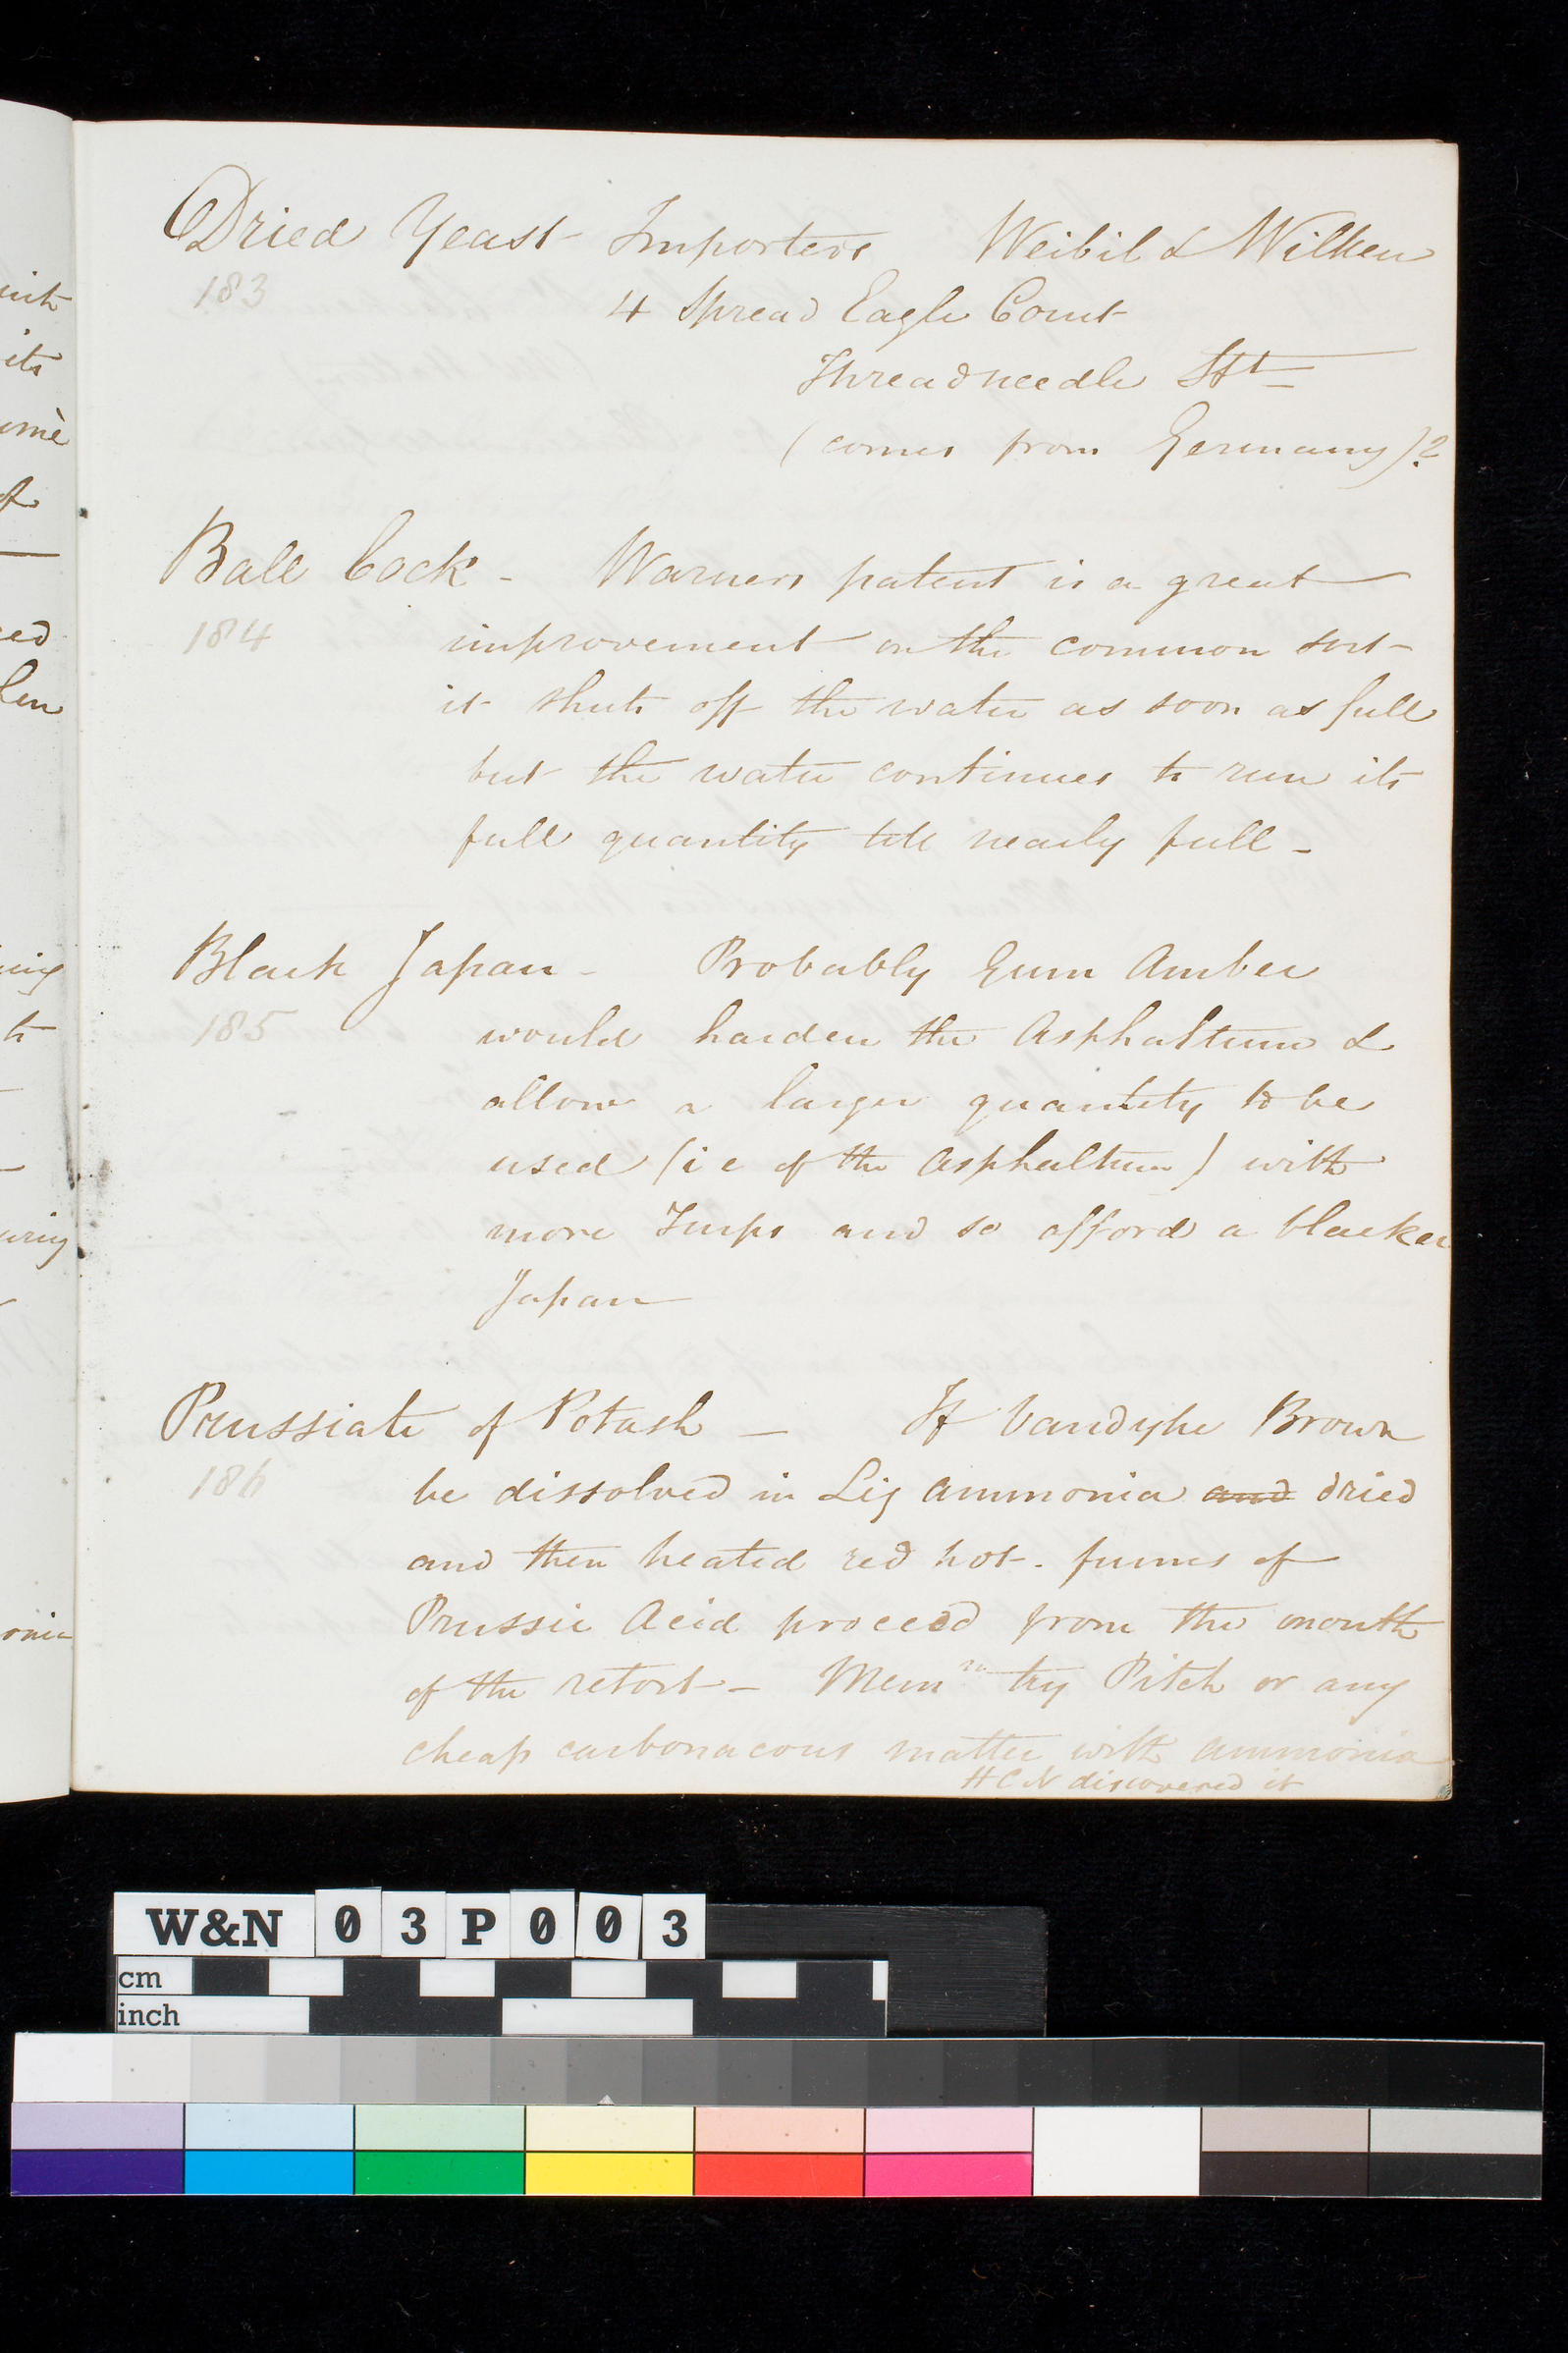 Dried Yeast Importers Weibil & Wilken
183
4 Spread Eagle Court
Threadneedle Stt
(comes from Germany)?
Ball Cock - Warners patent is a great
184
improvement on the common sort -
it shuts off the water as soon as full
but the water continues to run its
full quantity till nearly full -
Black Japan - Probably Gum Amber
185
would harden the Asphaltum &
allow a larger quantity to be
used (i e of the Asphaltum) with
more Turps and so afford a blacker
Japan
Prussiate of Potash - If Vandyke Brown
186
be dissolved in Liq Ammonia and dried
and then heated red hot - fumes of
Prussic Acid proceed from the mouth
of the retort - Mem try Pitch or any
cheap carbonacous matter with ammonia
HCN discovered it
W&N 03P003
cm
inch